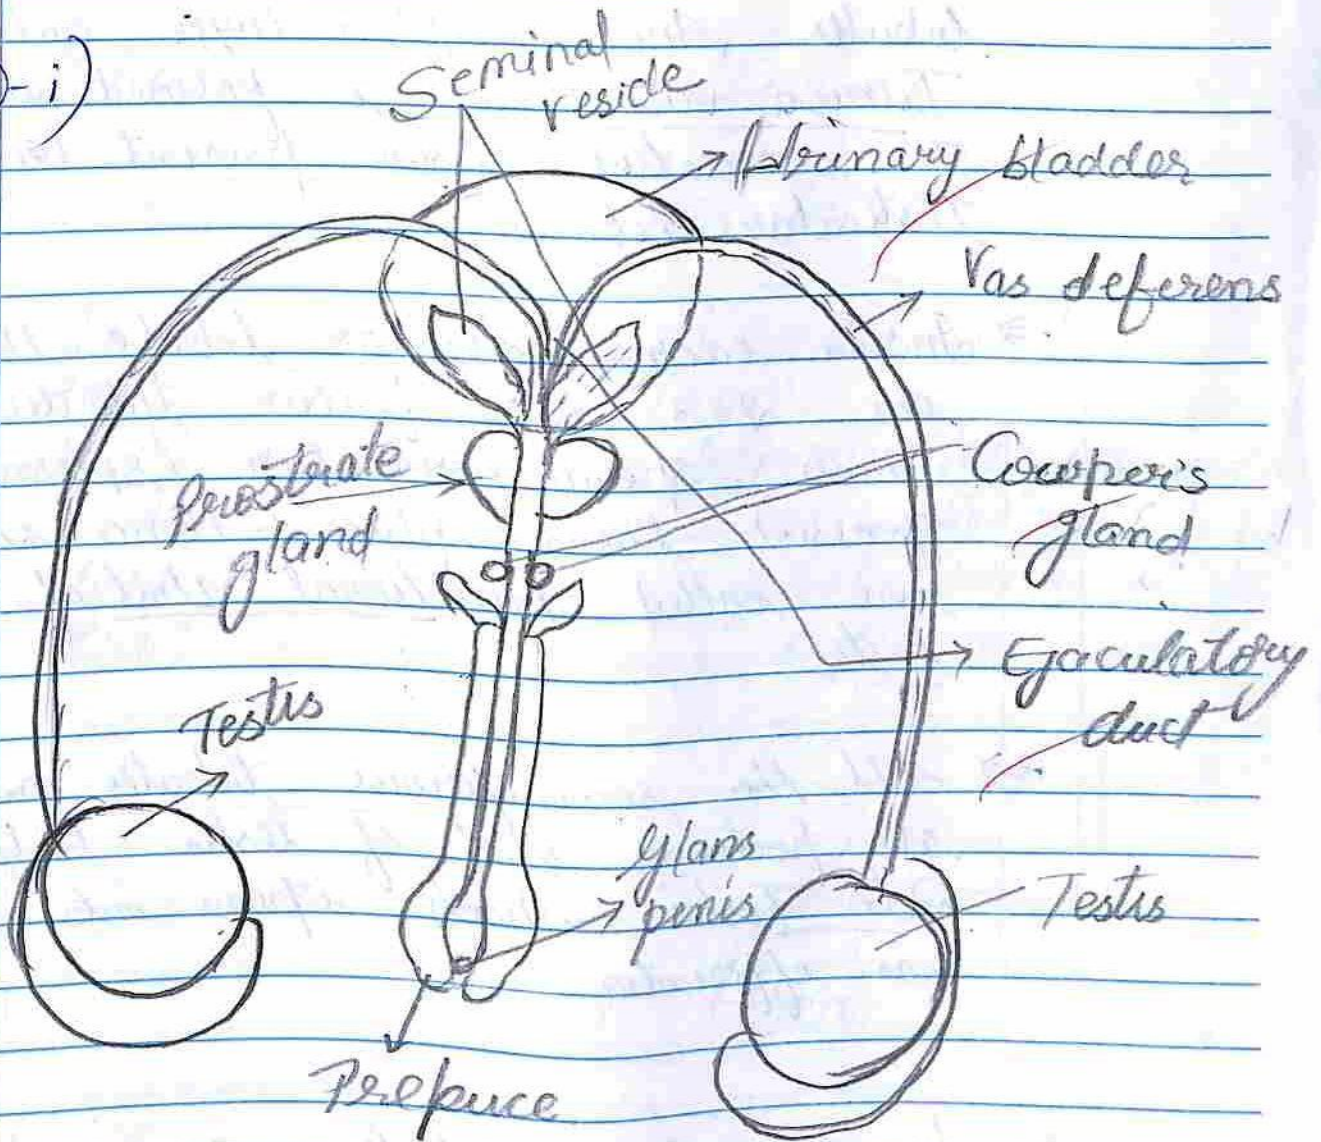 -i)
Seminal
reside
Urinary bladder
Vas deferens
Prostrate
gland
Cowper's
gland
Ejaculatory
duct
Testis
Glans
penis
Testis
Prepuce